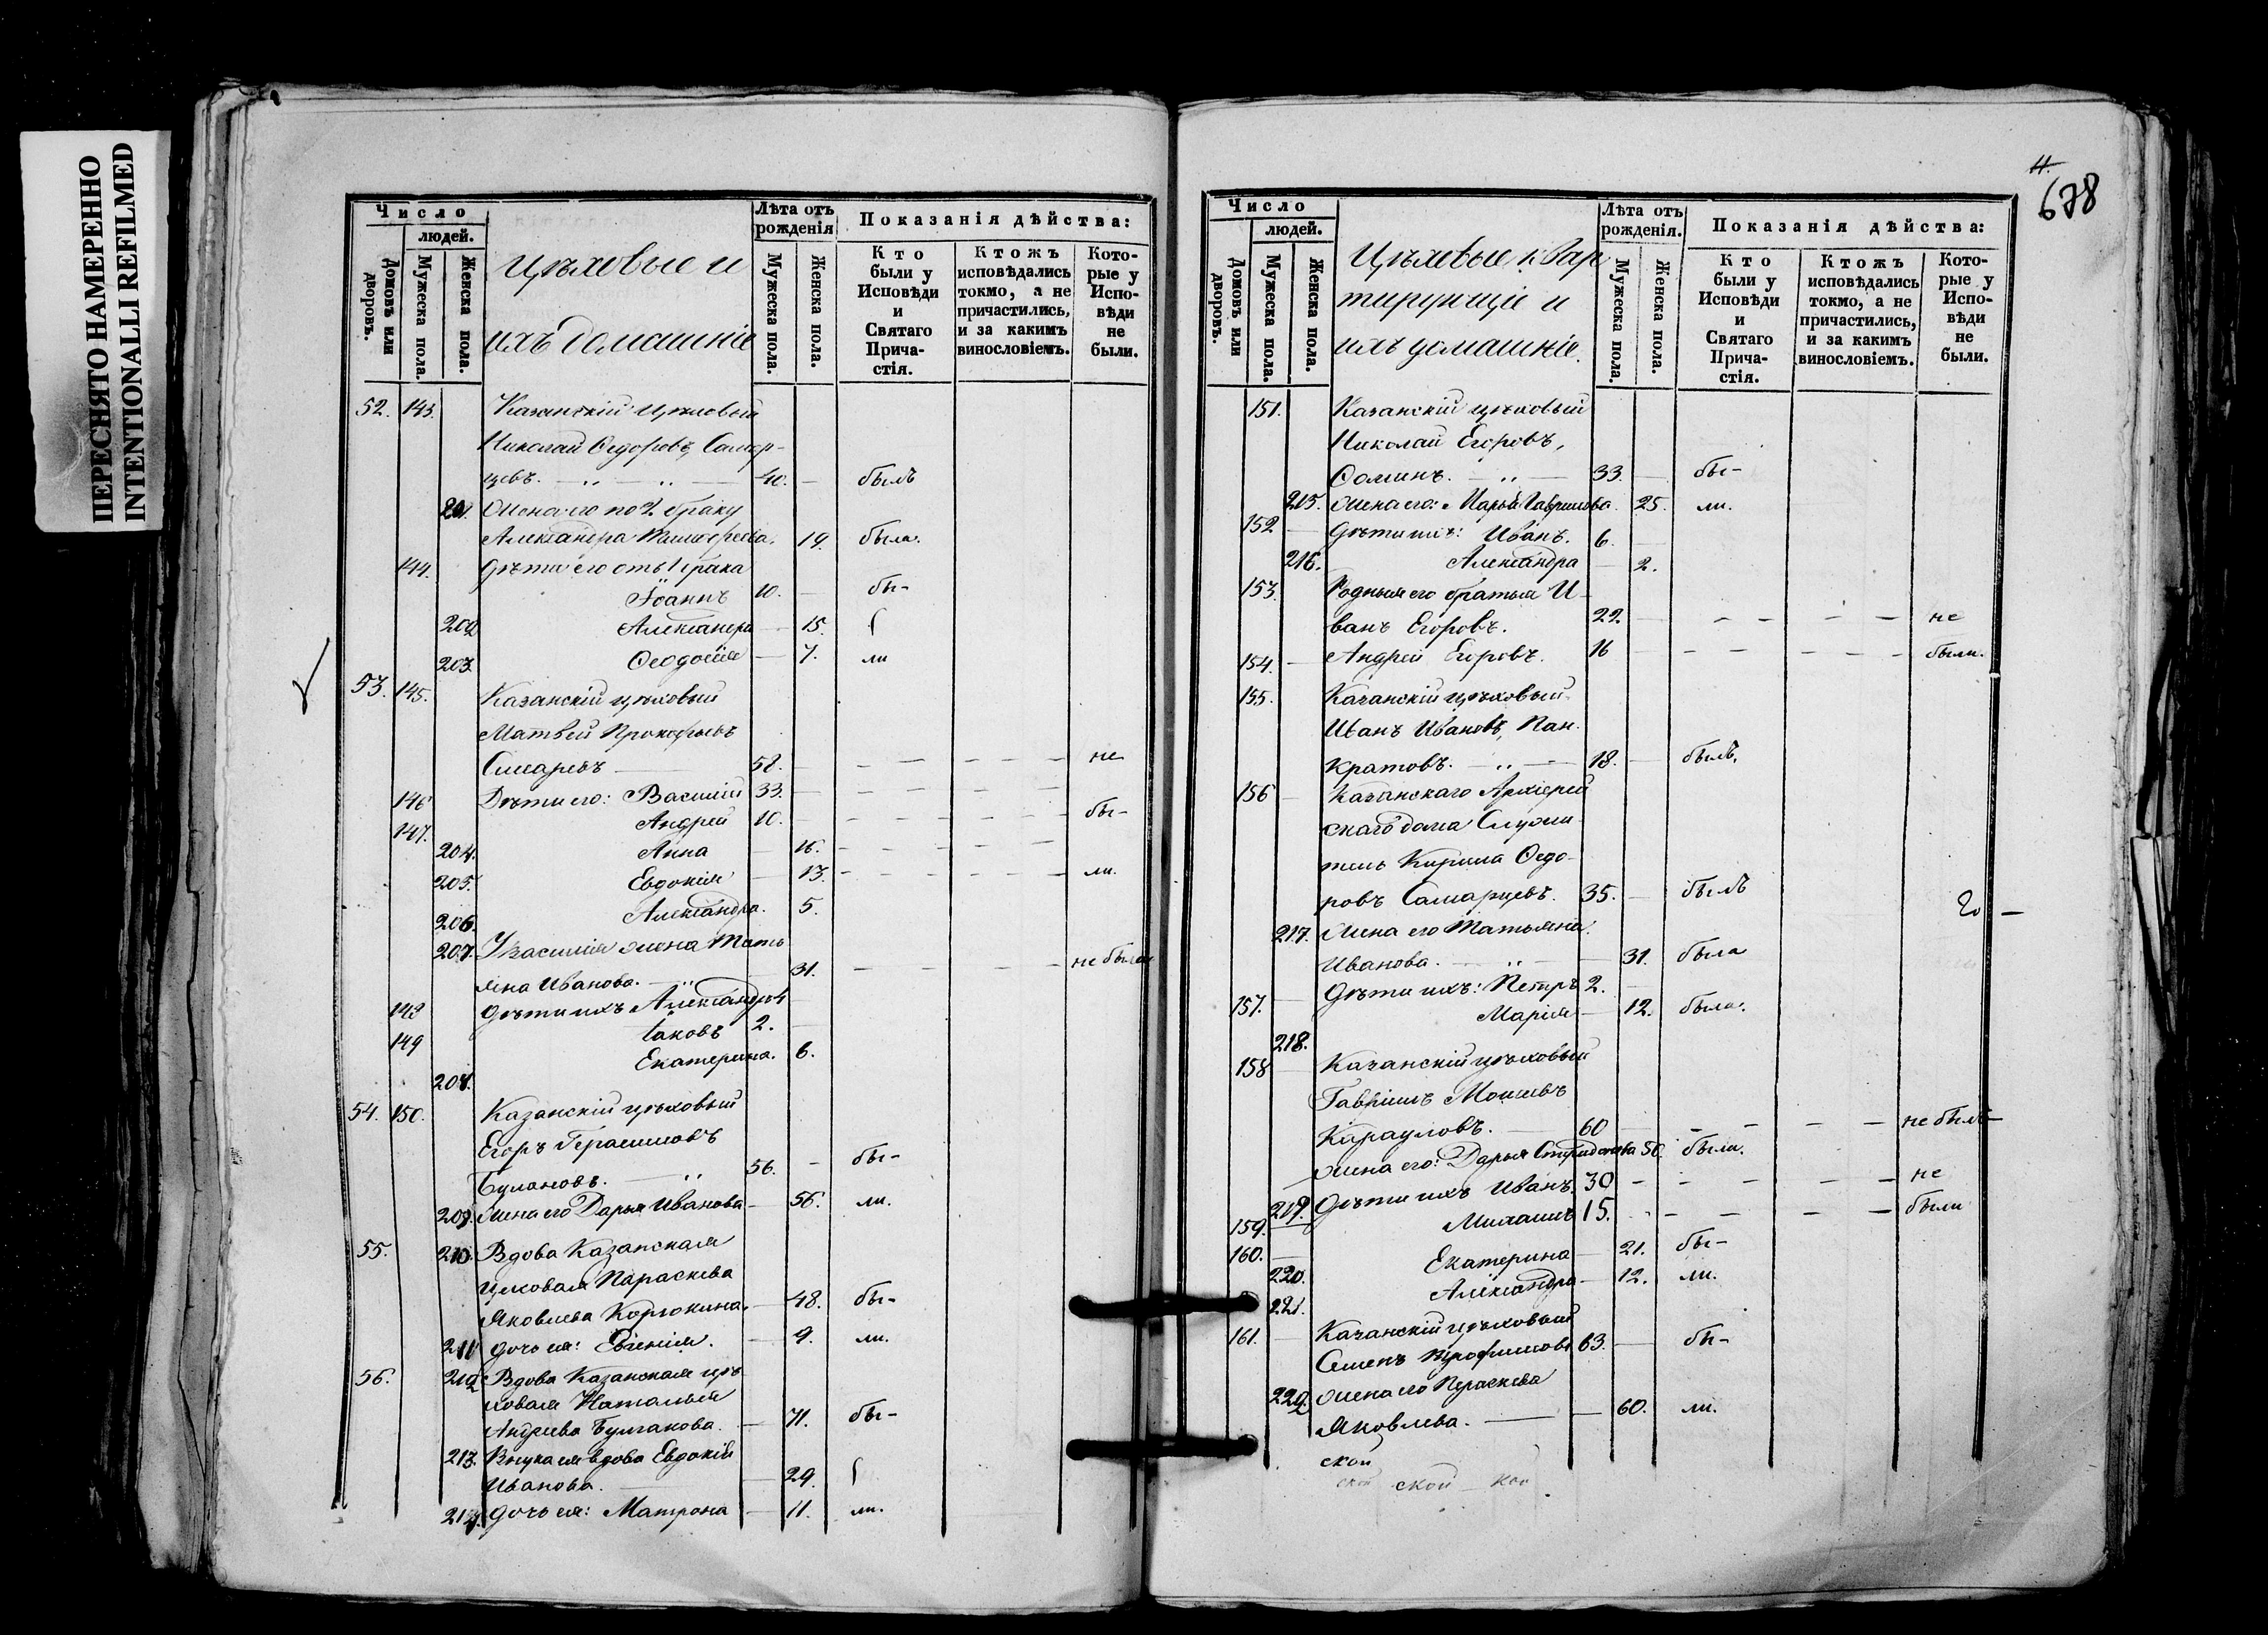 ПЕРЕСНЯТО НАМЕРЕННО
INTENTIONALLI REFILMED
Число
людей.
Домовъ или дворовъ.
Мужеска пола.
Женска пола.
Цѣховые и
ихъ домашніе
Лѣта отъ рожденія
Мужеска пола.
Женска пола.
Показанія дѣйства:
Кто были у Исповѣди и Святаго Причастія.
Ктожъ исповѣдались токмо, а не причастились, и за какимъ винословіемъ.
Которые у Исповѣди не были.
52. 143. Казанскій цѣховый
Николай Ѳедоровъ, Самар-
цевъ. 40. былъ
201. Жена его по 2 браку
Александра Тимофеева. 19. была.
144. Дѣти его отъ 1 брака
Іоаннъ 10. бы-
202 Александра 15.
203. Ѳеодосія 7. ли
53. 145. Казанскій цѣховый
Матвей Прокофьевъ
58. не
146 Дѣти его: Василій 33.
147. Андрей 10. бы-
204. Анна 16.
205. Евдокія 13. ли.
206. Александра. 5.
207. У Василія жена Тать
яна Иванова. 31. не была
148 Дѣти ихъ Александръ
149 Іаковъ 2.
Екатерина. 6.
208.
54. 150. Казанскій цѣховый
Егоръ Герасимовъ
Булановъ. 56. бы-
209. Жена его Дарья Иванова 56. ли.
55. 210. Вдова Казанская
цеховая Параскева
Яковлева Корюкина. 48. бы-
211 дочь ея: Евгенія. 9. ли.
56. 212 Вдова Казанская цѣ
ховая Наталья
Андреева Булгакова. 71. бы-
213. Внука ея вдова Евдокія
Иванова. 29.
214. дочь ея: Матрона 11. ли.
11.
678
Число
людей.
Домовъ или дворовъ.
Мужеска пола.
Женска пола.
Цѣховые квар
тирующіе и
ихъ домашніе.
Лѣта отъ рожденія.
Мужеска пола.
Женска пола.
Показанія дѣйства:
Кто были у Исповѣди и Святаго Причастія.
Ктожъ исповѣдались токмо, а не причастились, и за какимъ винословіемъ.
Которые у Исповѣди не были.
151. Казанскій цѣховый
Николай Егоровъ,
Ѳоминъ. 33. бы-
215. Жена его: Марья Гаврилова. 25. ли.
152 Дѣти ихъ: Иванъ. 6.
216. Александра 2.
153. Родныя его братья И-
ванъ Егоровъ. 22. не
154. Андрей Егоровъ. 16 были.
155. Казанскій цѣховый
Иванъ Ивановъ, Пан.
кратовъ. 18. былъ.
156 Казанскаго Архіерей
скаго дома Служи-
тель Кирила Ѳедо-
ровъ Самарцевъ. 35. былъ
217. Жена его Татьяна
Иванова. 31. была
157. Дѣти ихъ: Петръ 2.
Марія 12. была.
218.
158 Казанскій цѣховый
Гавріилъ Моисѣевъ
Карауловъ. 60 не былъ
Жена его: Дарья 50. была.
219. Дѣти ихъ Иванъ. 30 не
159. Михаилъ 15. были
160. Екатерина 21. бы-
220. Александра 12. ли.
221.
161. Казанскій цѣховый
Семенъ Трофимовъ 63. бы-
222. Жена его Параскева
Яковлева. 60. ли.
ской
ской ской кой